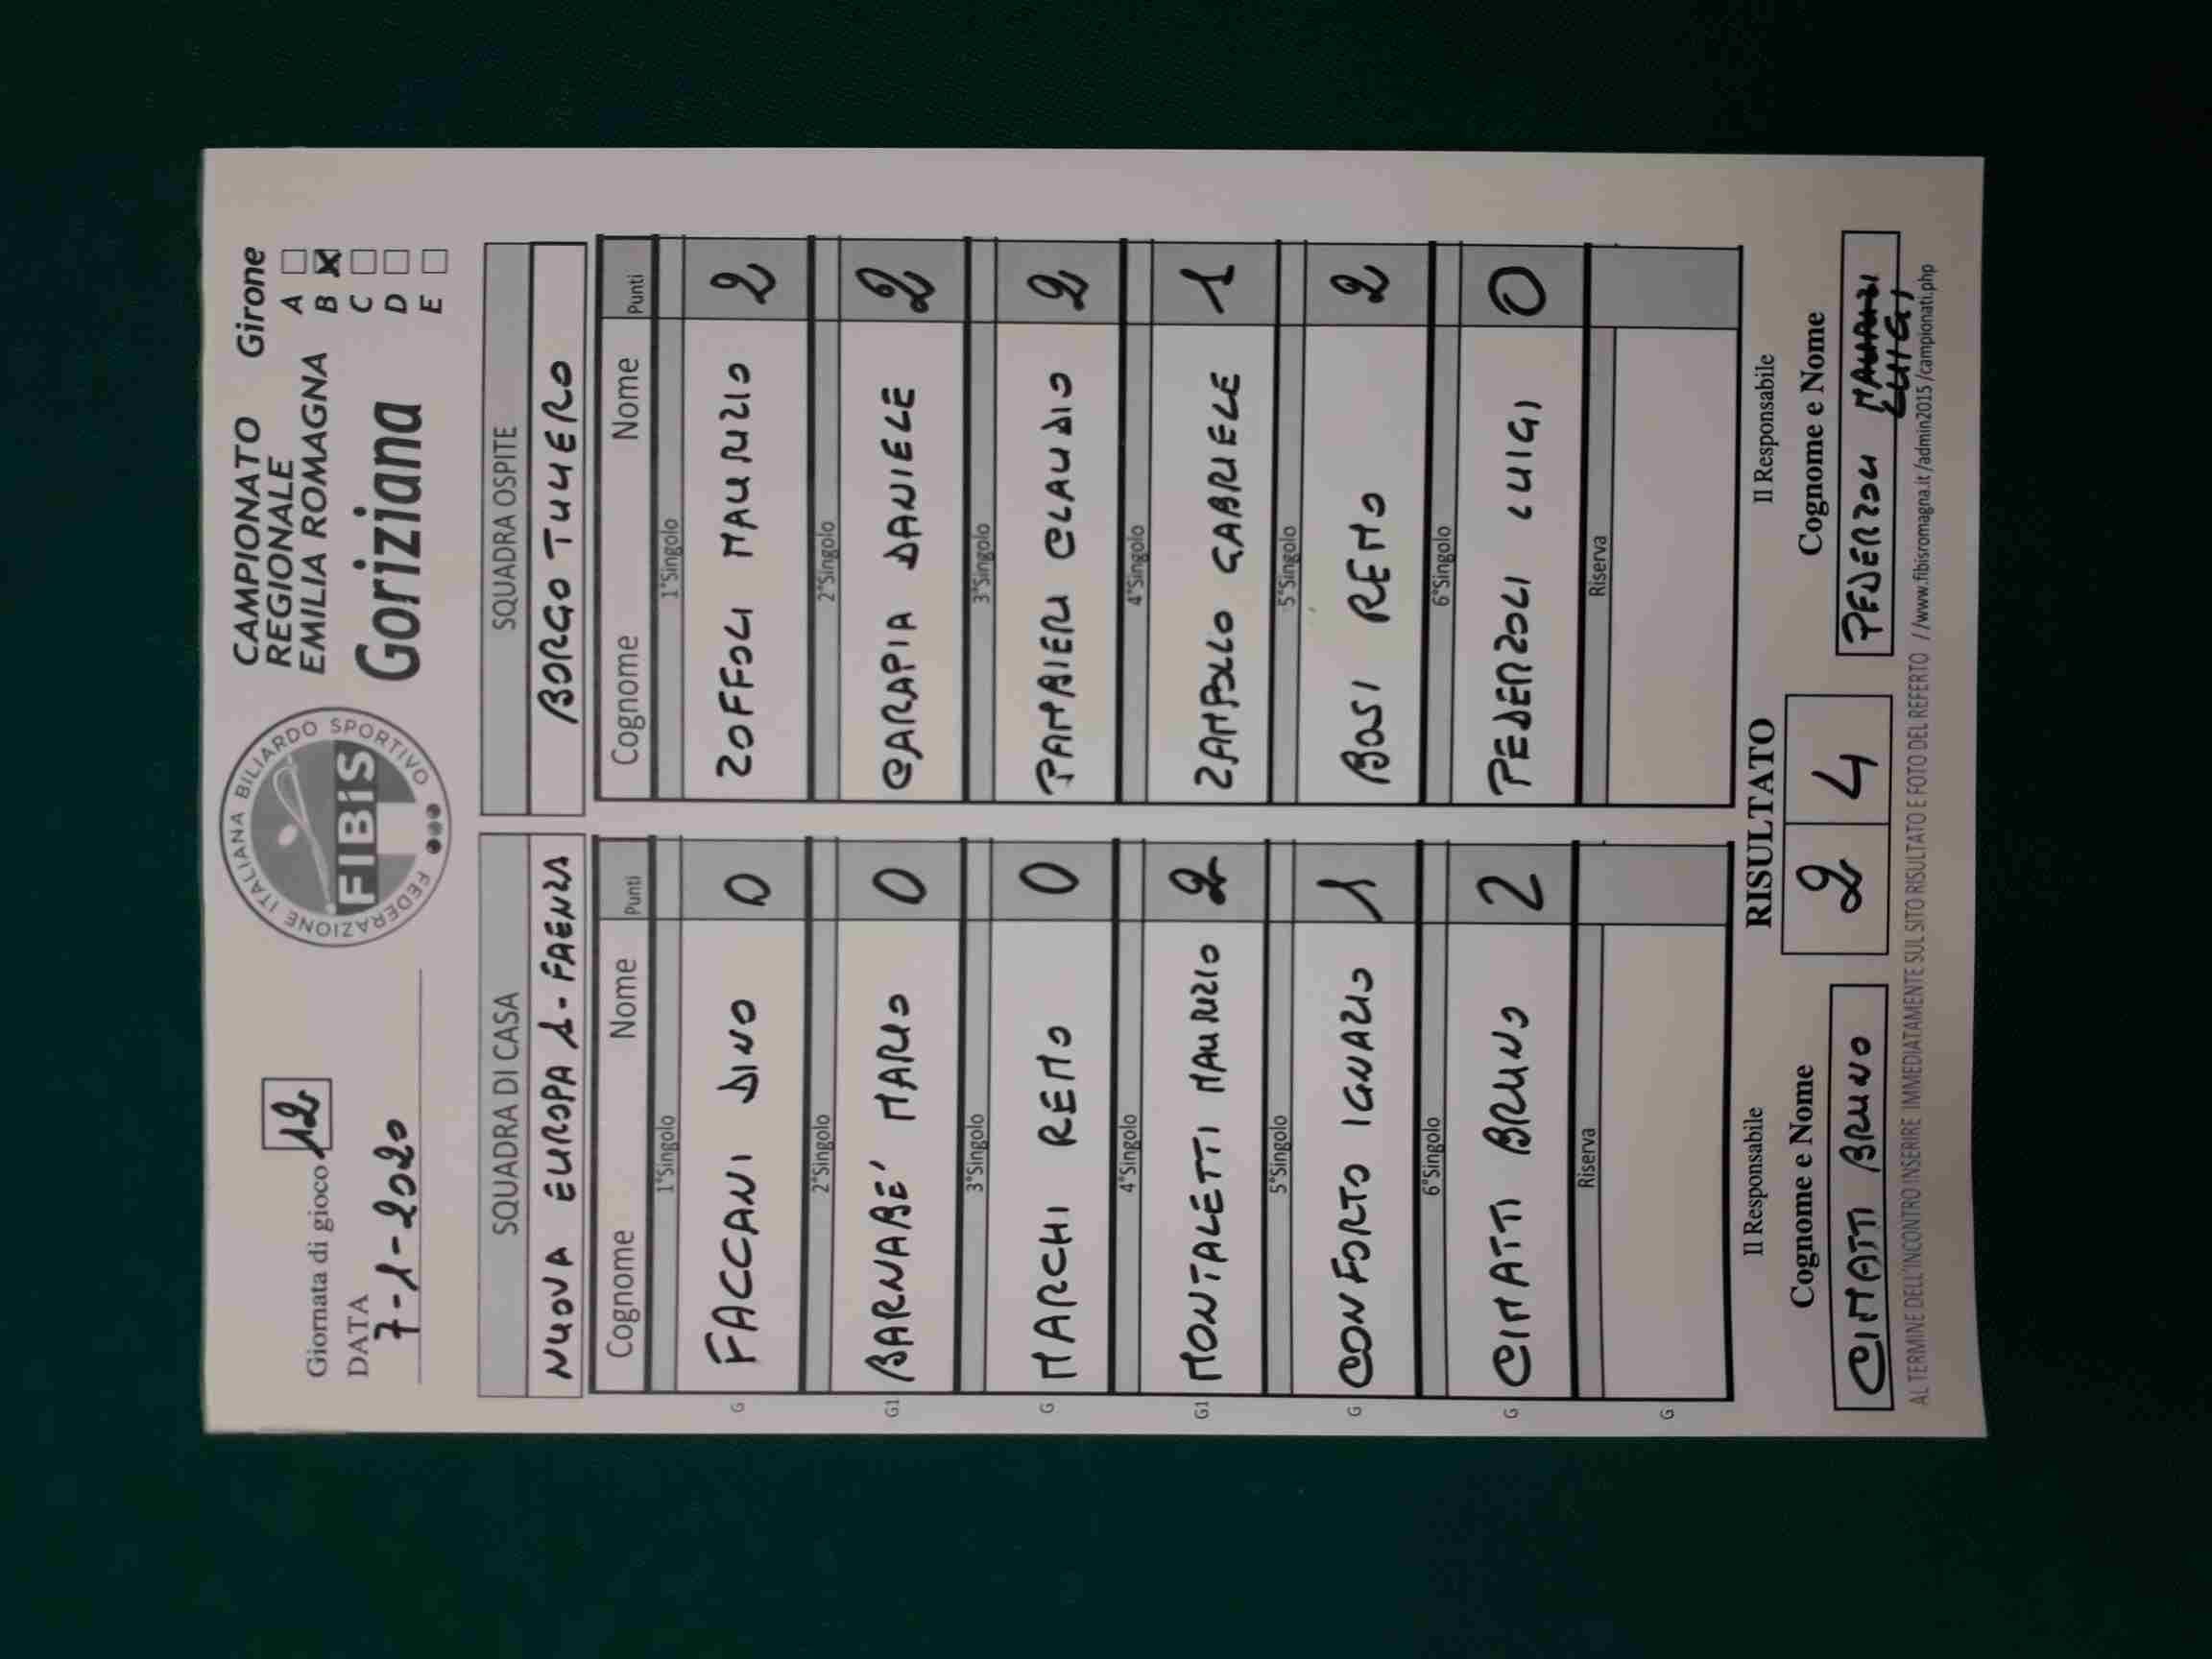 Giornata di gioco 12
DATA
7-1-2020
FEDERAZIONE ITALIANA BILIARDO SPORTIVO
FIBiS
CAMPIONATO
REGIONALE
EMILIA ROMAGNA
Goriziana
Girone
A
B X
C
D
E
SQUADRA DI CASA SQUADRA OSPITE
NUOVA EUROPA 1-FAENZA BORGO TULIERO
Cognome Nome Punti Cognome Nome Punti
1°Singolo 1°Singolo
G FACCANI DINO 0 ZOFFOLI MAURIZIO 2
2°Singolo 2°Singolo
G1 BARNABE' MARIO 0 CARAPIA DANIELE 2
3°Singolo 3°Singolo
G MARCHI REMO 0 PAMBIERI CLAUDIO 2
4°Singolo 4°Singolo
G1 MONTALETTI MAURIZIO 2 ZAMPOLLO GABRIELE 1
5°Singolo 5°Singolo
G CONFORTO IGNAZIO 1 BOSI REMO 2
6°Singolo 6°Singolo
G CIMATTI BRUNO 2 PEDERZOLI LUIGI 0
Riserva Riserva
G
Il Responsabile RISULTATO Il Responsabile
Cognome e Nome 2 4 Cognome e Nome
CIMATTI BRUNO PEDERZOLI LUIGI
AL TERMINE DELL'INCONTRO INSERIRE IMMEDIATAMENTE SUL SITO RISULTATO E FOTO DEL REFERTO //www.fibisromagna.it /admin2015 /campionati.php